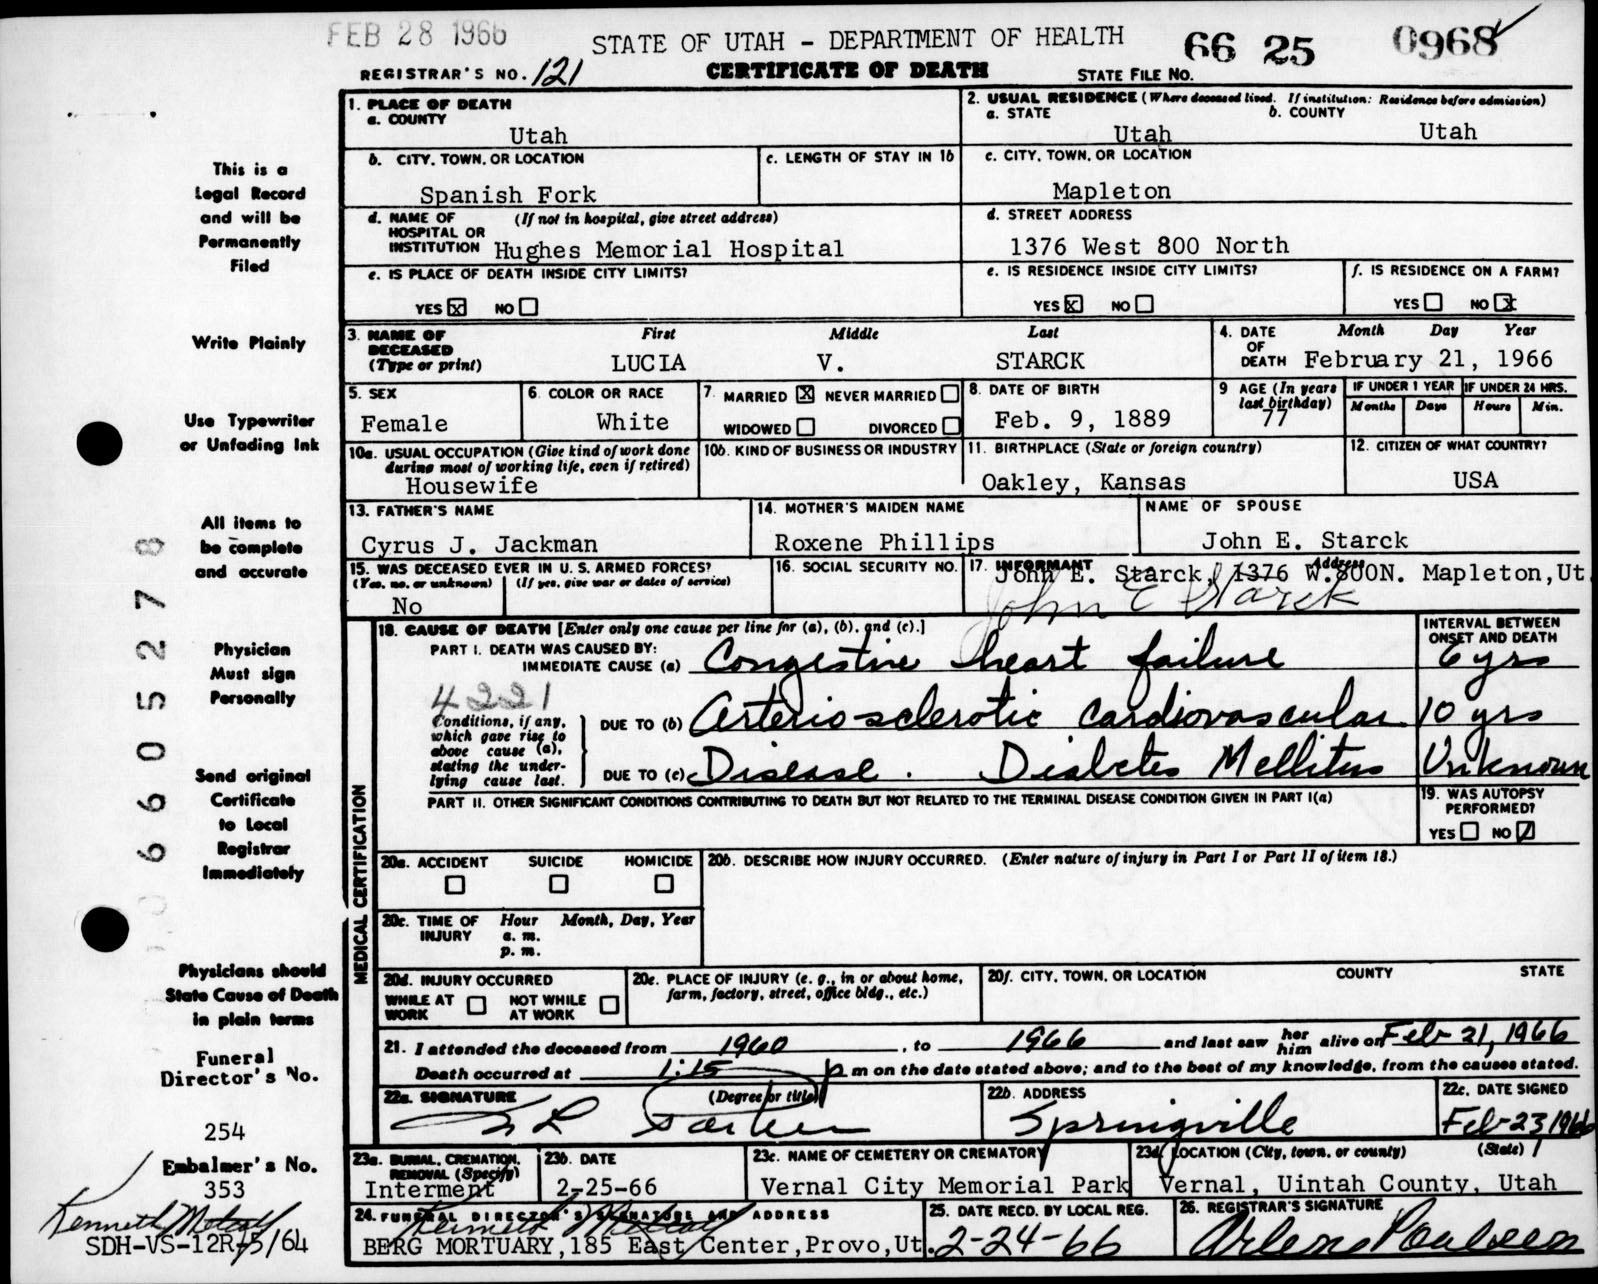 FEB 28 1966
STATE OF UTAH - DEPARTMENT OF HEALTH
66 25 0968
REGISTRAR'S NO. 121
CERTIFICATE OF DEATH
STATE FILE NO.
1. PLACE OF DEATH
a. COUNTY
Utah
2. USUAL RESIDENCE (Where deceased lived. If institution: Residence before admission)
a. STATE b. COUNTY
Utah Utah
b. CITY, TOWN, OR LOCATION
Spanish Fork
c. LENGTH OF STAY IN 1b
c. CITY, TOWN, OR LOCATION
Mapleton
d. NAME OF HOSPITAL OR INSTITUTION (If not in hospital, give street address)
Hughes Memorial Hospital
d. STREET ADDRESS
1376 West 800 North
e. IS PLACE OF DEATH INSIDE CITY LIMITS?
YES x NO
e. IS RESIDENCE INSIDE CITY LIMITS?
YES x NO
f. IS RESIDENCE ON A FARM?
YES NO x
3. NAME OF DECEASED (Type or print)
First Middle Last
LUCIA V. STARCK
4. DATE OF DEATH
Month Day Year
February 21, 1966
5. SEX
Female
6. COLOR OR RACE
White
7. MARRIED x NEVER MARRIED
WIDOWED DIVORCED
8. DATE OF BIRTH
Feb. 9, 1889
9 AGE (In years last birthday)
77
IF UNDER 1 YEAR
Months Days
IF UNDER 24 HRS.
Hours Min.
10a. USUAL OCCUPATION (Give kind of work done during most of working life, even if retired)
Housewife
10b. KIND OF BUSINESS OR INDUSTRY
11. BIRTHPLACE (State or foreign country)
Oakley, Kansas
12. CITIZEN OF WHAT COUNTRY?
USA
13. FATHER'S NAME
Cyrus J. Jackman
14. MOTHER'S MAIDEN NAME
Roxene Phillips
NAME OF SPOUSE
John E. Starck
15. WAS DECEASED EVER IN U. S. ARMED FORCES?
(Yes, no, or unknown) (If yes, give war or dates of service)
No
16. SOCIAL SECURITY NO.
17. INFORMANT Address
John E. Starck, 1376 W.800N. Mapleton,Ut.
John E Starck
MEDICAL CERTIFICATION
18. CAUSE OF DEATH [Enter only one cause per line for (a), (b), and (c).]
PART I. DEATH WAS CAUSED BY:
IMMEDIATE CAUSE (a) Congestive heart failure
INTERVAL BETWEEN ONSET AND DEATH
6 yrs
4221
Conditions, if any, which gave rise to above cause (a), stating the underlying cause last.
DUE TO (b) Arteriosclerotic cardiovascular 10 yrs
DUE TO (c) Disease. Diabetes Mellitus Unknown
PART II. OTHER SIGNIFICANT CONDITIONS CONTRIBUTING TO DEATH BUT NOT RELATED TO THE TERMINAL DISEASE CONDITION GIVEN IN PART I(a)
19. WAS AUTOPSY PERFORMED?
YES NO
20a. ACCIDENT SUICIDE HOMICIDE
20b. DESCRIBE HOW INJURY OCCURRED. (Enter nature of injury in Part I or Part II of item 18.)
20c. TIME OF INJURY Hour Month, Day, Year
a. m.
p. m.
20d. INJURY OCCURRED
WHILE AT WORK NOT WHILE AT WORK
20e. PLACE OF INJURY (e. g., in or about home, farm, factory, street, office bldg., etc.)
20f. CITY, TOWN, OR LOCATION COUNTY STATE
21. I attended the deceased from 1960, to 1966 and last saw her him alive on Feb 21, 1966
Death occurred at 1:15 p m on the date stated above; and to the best of my knowledge, from the causes stated.
22a. SIGNATURE (Degree or title)
22b. ADDRESS
Springville
22c. DATE SIGNED
Feb-23 1966
23a. BURIAL, CREMATION, REMOVAL (Specify)
Interment
23b. DATE
2-25-66
23c. NAME OF CEMETERY OR CREMATORY
Vernal City Memorial Park
23d. LOCATION (City, town, or county) (State)
Vernal, Uintah County, Utah
24. FUNERAL DIRECTOR'S SIGNATURE AND ADDRESS
Kenneth Metcalf
BERG MORTUARY,185 East Center,Provo,Ut.
25. DATE RECD. BY LOCAL REG.
2-24-66
26. REGISTRAR'S SIGNATURE
Arlene Poulsen
This is a
Legal Record
and will be
Permanently
Filed
Write Plainly
Use Typewriter
or Unfading Ink
All items to
be complete
and accurate
Physician
Must sign
Personally
Send original
Certificate
to Local
Registrar
Immediately
Physicians should
State Cause of Death
in plain terms
Funeral
Director's No.
254
Embalmer's No.
353
Kenneth Metcalf
SDH-VS-12R-5/64
06605278